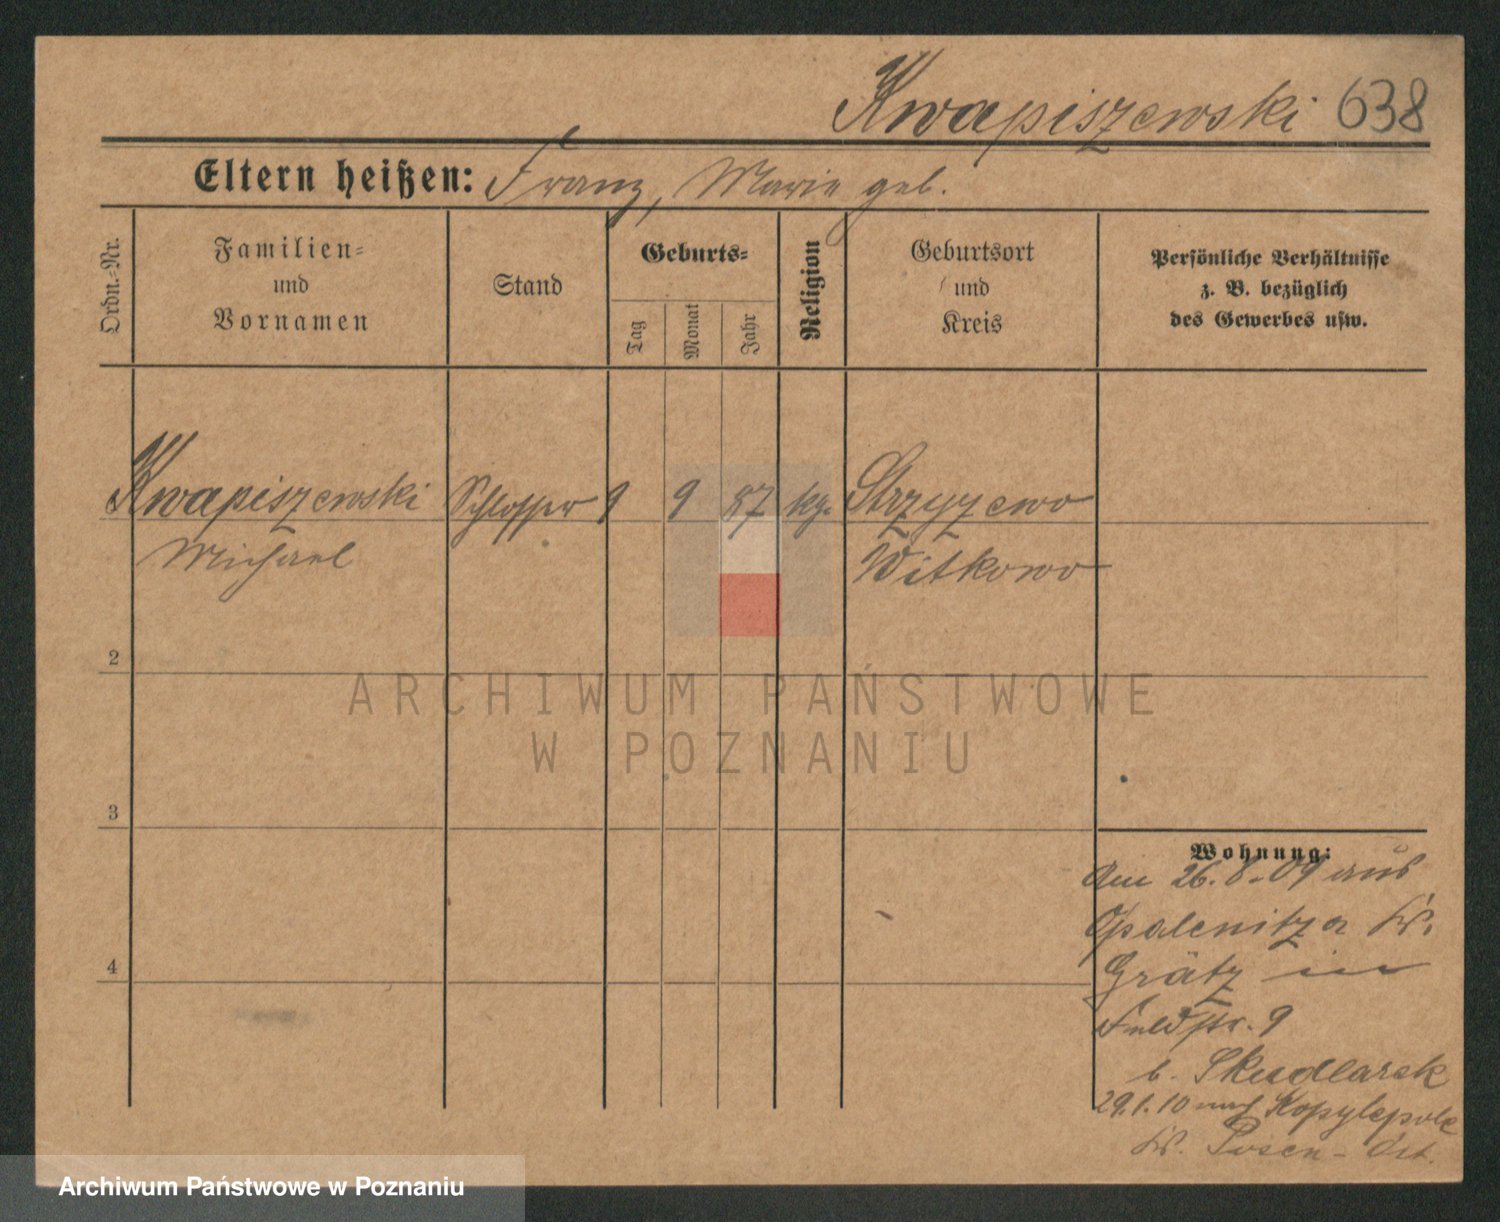 Kwapiszewski 638
Eltern heißen: Franz, Marie geb.
Ordn.-Nr.
Familien-
und
Vornamen
Stand
Geburts-
Tag
Monat
Jahr
Religion
Geburtsort
und
Kreis
Persönliche Verhältnisse
z. B. bezüglich
des Gewerbes usw.
Kwapiszewski Schlosser 9 9 87 kg. Strzyzewo
Michael Witkowo
2
ARCHIWUM PAŃSTWOWE
W POZNANIU
3
Wohnung:
Am 26.8.09 aus
Opalenitza Kr.
4
Grätz in
Feldstr. 9
b. Skudlarek
29.1.10 nach Kopylepole
Kr. Posen-Ost.
Archiwum Państwowe w Poznaniu